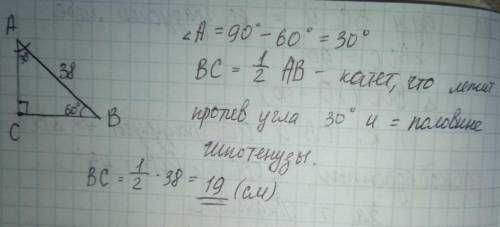 A
38
60°
C
B
∠A = 90° - 60° = 30°
BC = 1/2 AB - катет, что лежит
против угла 30° и = половине
гипотенузы.
BC = 1/2 · 38 = 19 (см)